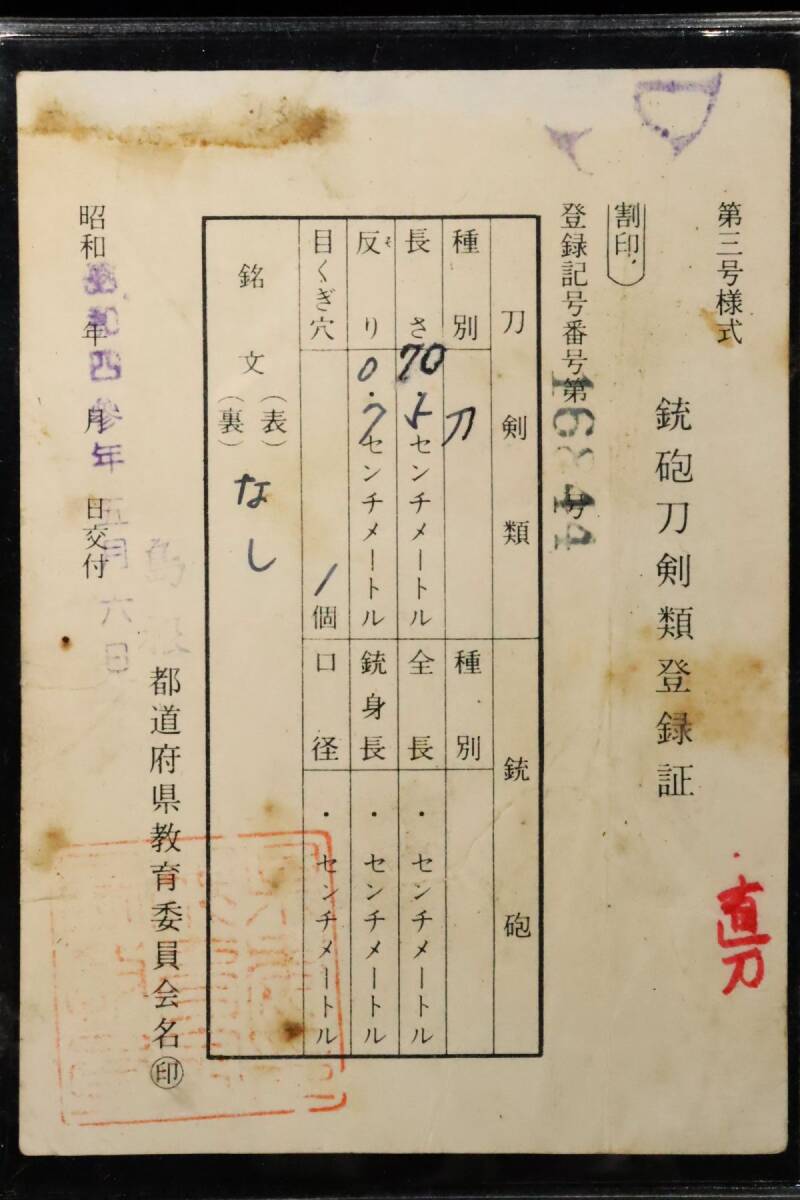 第三号様式
銃砲刀剣類登録証
直刀
割印
登録記号番号第 号
刀剣類
銃砲
種別
刀
種別
長さ
70.5センチメートル
全長
・センチメートル
反り
そ
0.7センチメートル
銃身長
・センチメートル
目くぎ穴
1個
口径
・センチメートル
銘文
(表)
(裏)
なし
都道府県教育委員会名㊞
昭和 年 月 日交付
四参年五月六日